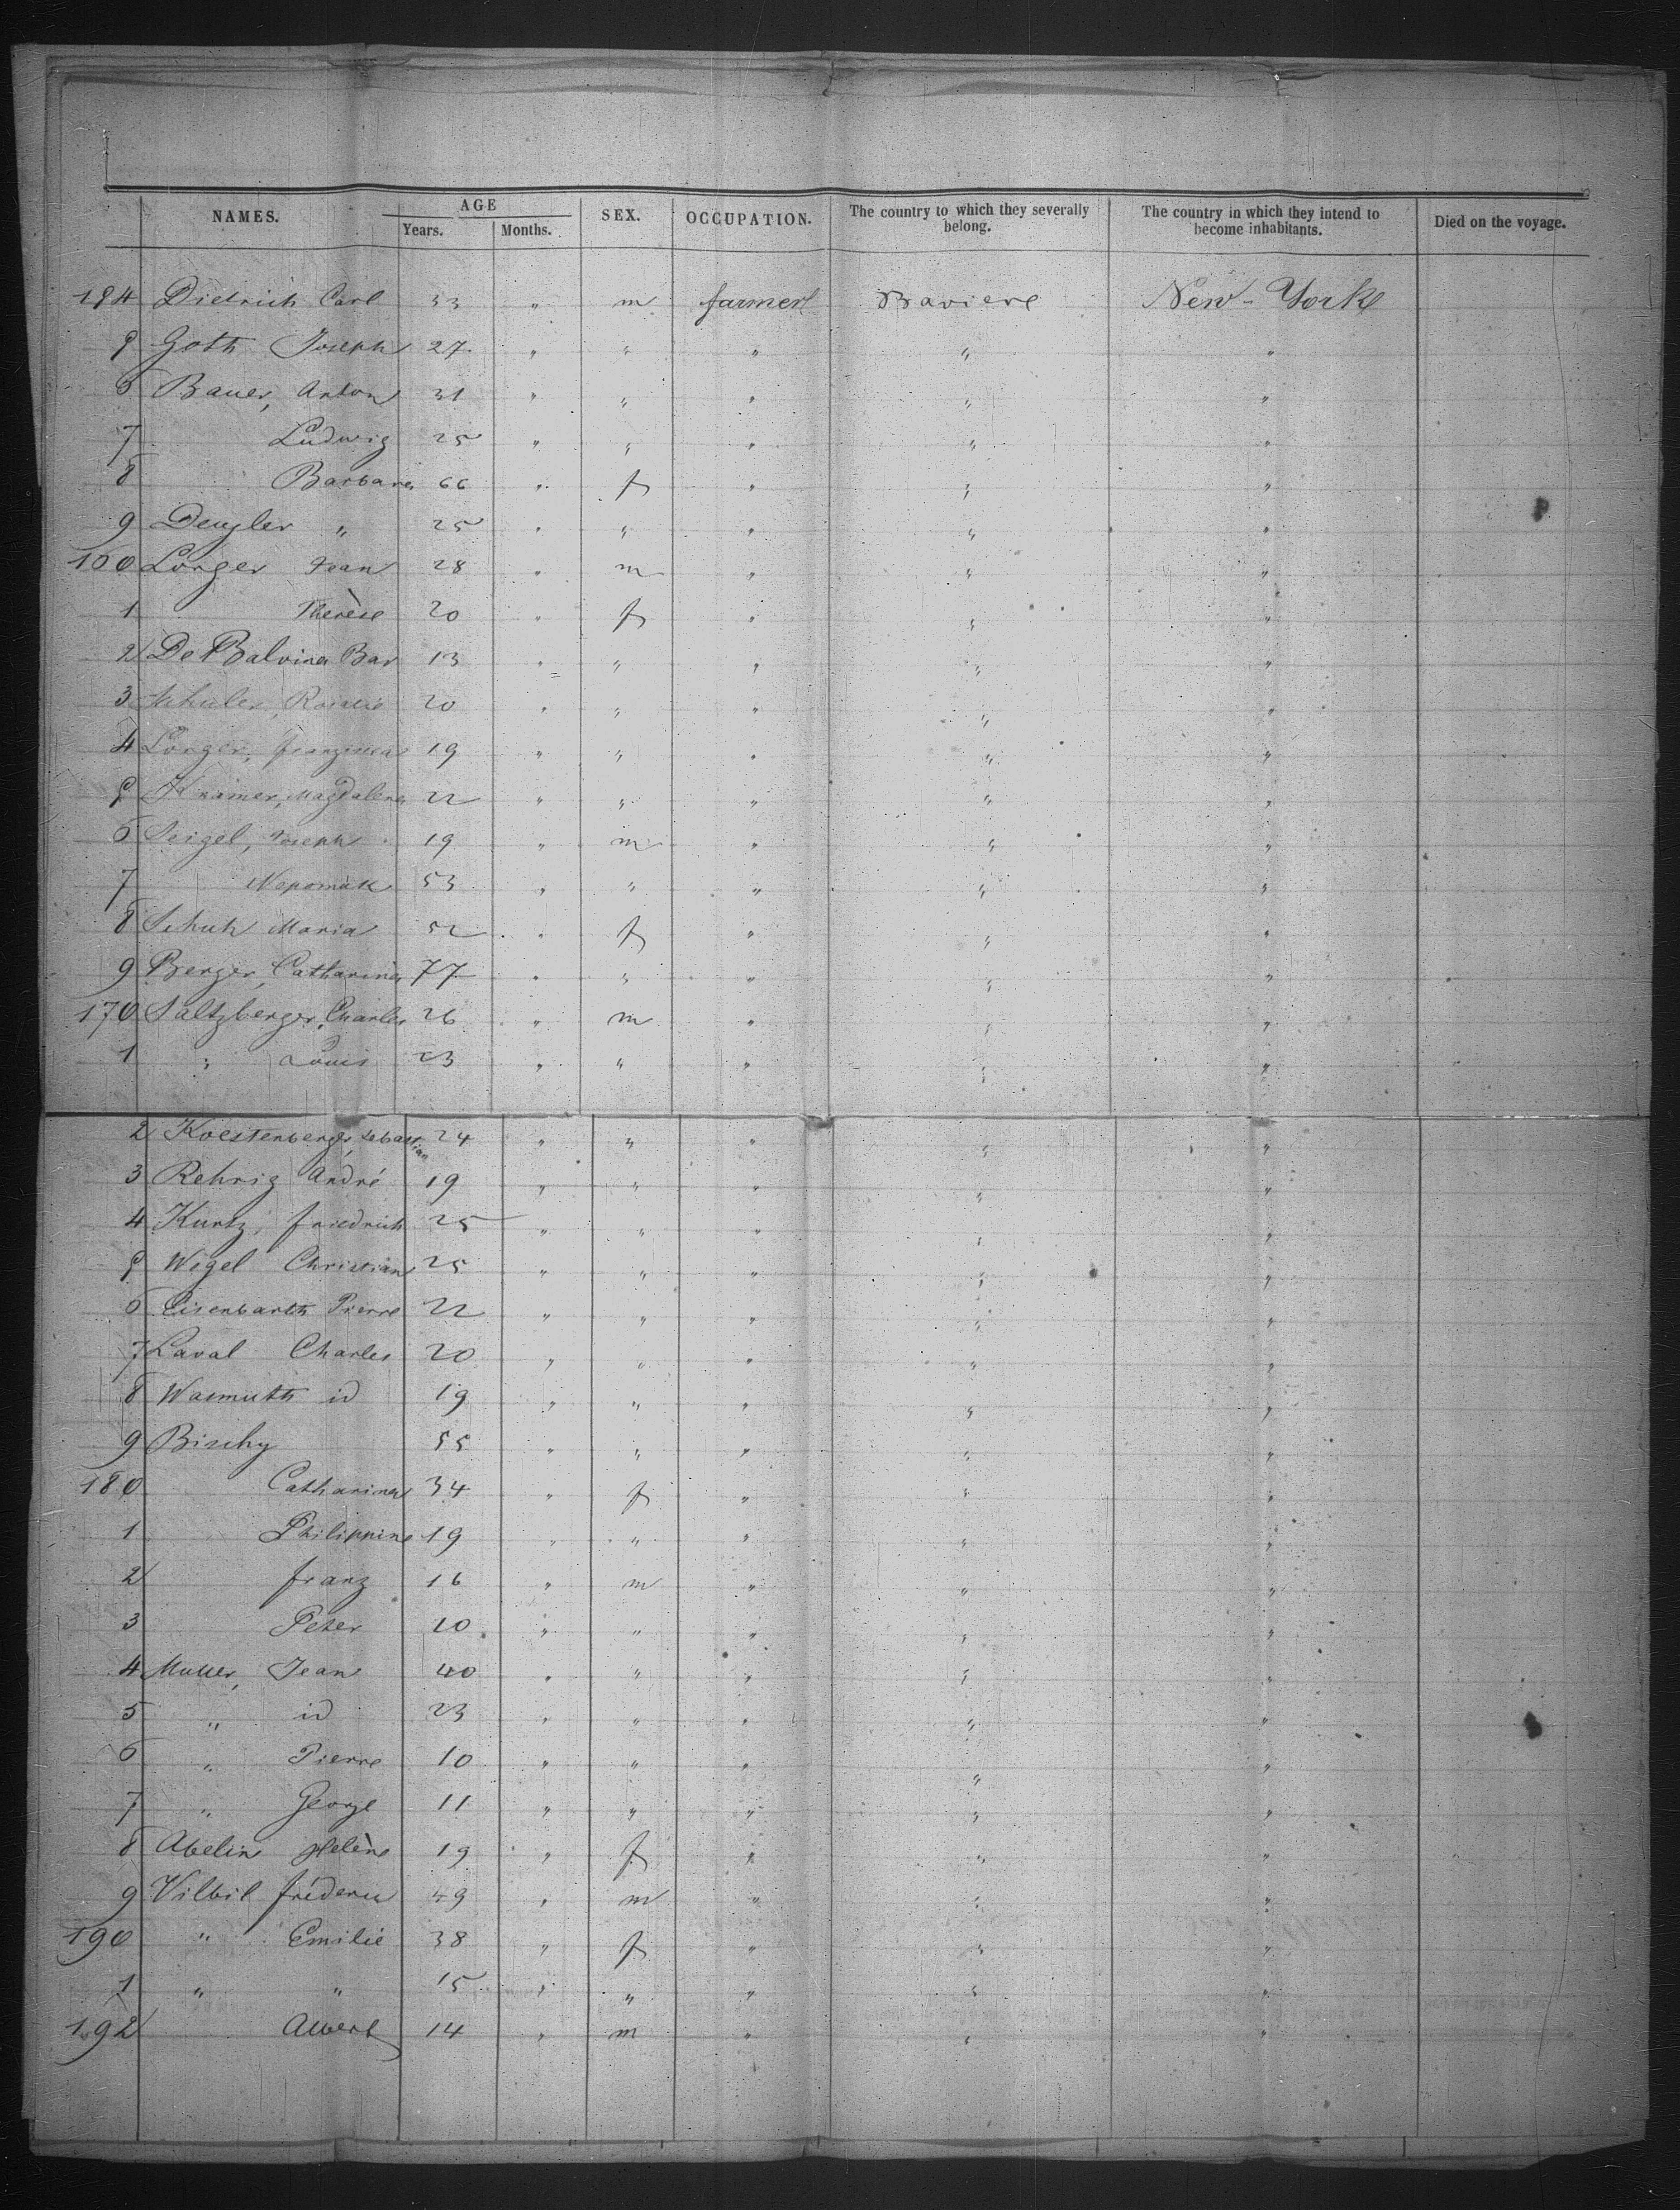 NAMES. AGE SEX. OCCUPATION. The country to which they severally belong. The country in which they intend to become inhabitants. Died on the voyage.
Years. Months.
154 Dietrich Carl 33 " m farmer Baviere New-York
5 Goth Joseph 27 " " " " "
6 Bauer, Anton 31 " " " " "
7 Ludwig 25 " " " " "
8 Barbara 66 " f " " "
9 Dengler " 25 " " " " "
160 Lorger Jean 28 " m " " "
1 Therèse 20 " f " " "
2 De Balvina Bar 13 " " " " "
3 Schuler, Rosalie 20 " " " " "
4 Lorger, franzisca 19 " " " " "
5 Kramer, Magdalena 22 " " " " "
6 Seigel, Joseph 19 " m " " "
7 Nepomuk 53 " " " " "
8 Schuh Maria 52 " f " " "
9 Berger, Catharina 77 " " " " "
170 Saltzberger, Charles 26 " m " " "
1 " Louis 23 " " " " "
2 Koestenberger, Sebastian 24 " " " " "
3 Rehrig André 19 " " " " "
4 Kurtz, friedrich 25 " " " " "
5 Wigel Christian 25 " " " " "
6 Eisenbarth Pierre 22 " " " " "
7 Laval Charles 20 " " " " "
8 Wasmuth id 19 " " " " "
9 Bischy 55 " " " " "
180 Catharina 34 " f " " "
1 Philippine 19 " " " " "
2 franz 16 " m " " "
3 Peter 10 " " " " "
4 Muller, Jean 40 " " " " "
5 " id 23 " " " " "
6 " Pierre 10 " " " " "
7 " George 11 " " " " "
8 Abelin Helène 19 " f " " "
9 Vilbil fréderic 49 " m " " "
190 " Emilie 38 " f " " "
1 " " 15 " " " " "
192 Albert 14 " m " " "